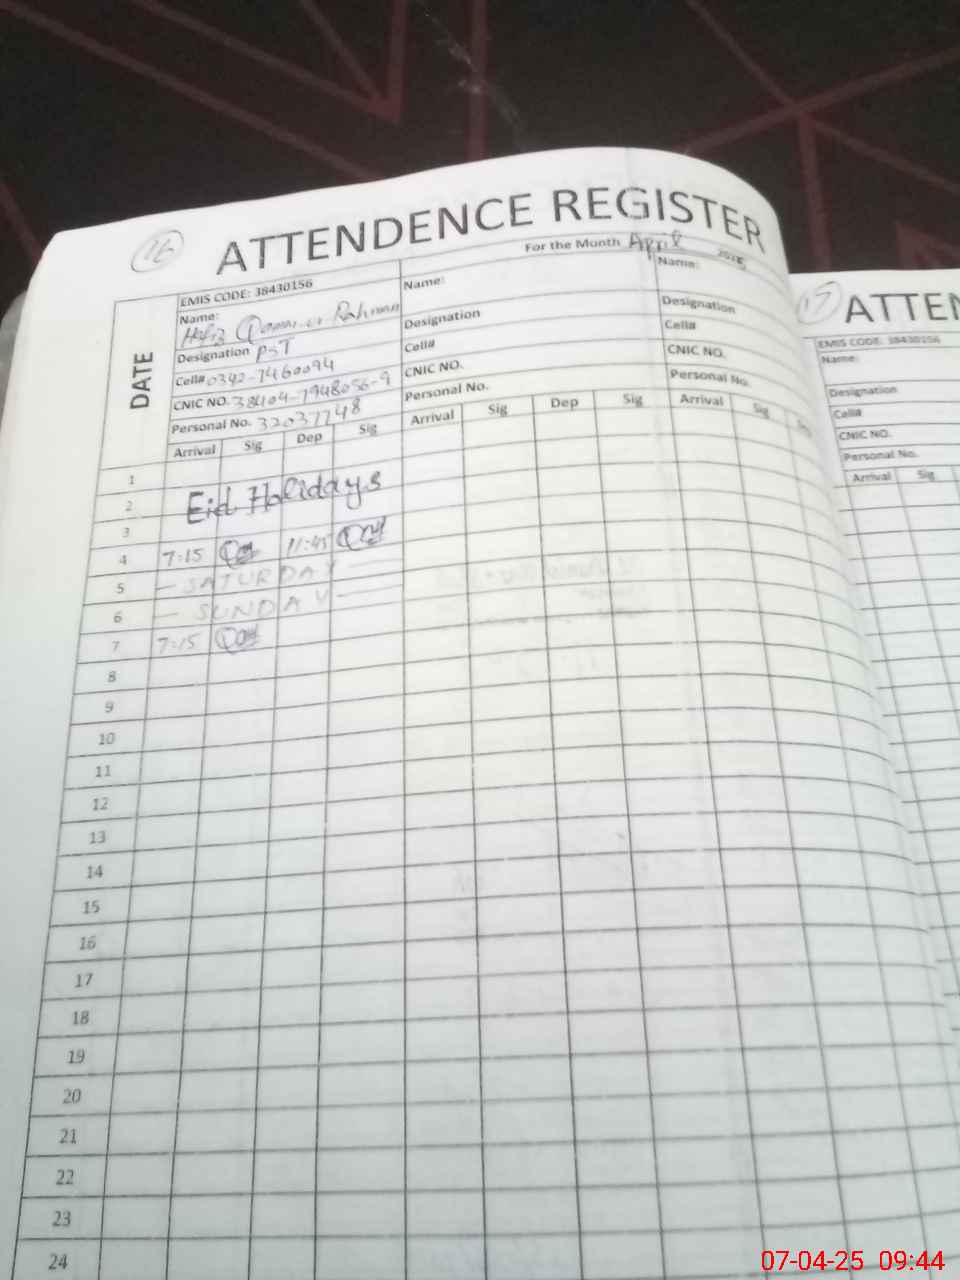 16
ATTENDENCE REGISTER
For the Month April 2025
DATE
EMIS CODE: 38430156
Name: Hafiz Qamar ur Rahman
Designation PST
Cell# 0342-7460094
CNIC NO. 38404-7948056-9
Personal No. 32037748
Arrival Sig Dep Sig
Name:
Designation
Cell#
CNIC NO.
Personal No.
Arrival Sig Dep Sig
Name:
Designation
Cell#
CNIC NO.
Personal No.
Arrival Sig
1
2 Eid Holidays
3
4 7:15 11:45
5 - SATURDAY -
6 - SUNDAY -
7 7:15
8
9
10
11
12
13
14
15
16
17
18
19
20
21
22
23
24
17
ATTEN
EMIS CODE: 38430156
Name:
Designation
Cell#
CNIC NO.
Personal No.
Arrival Sig
07-04-25 09:44